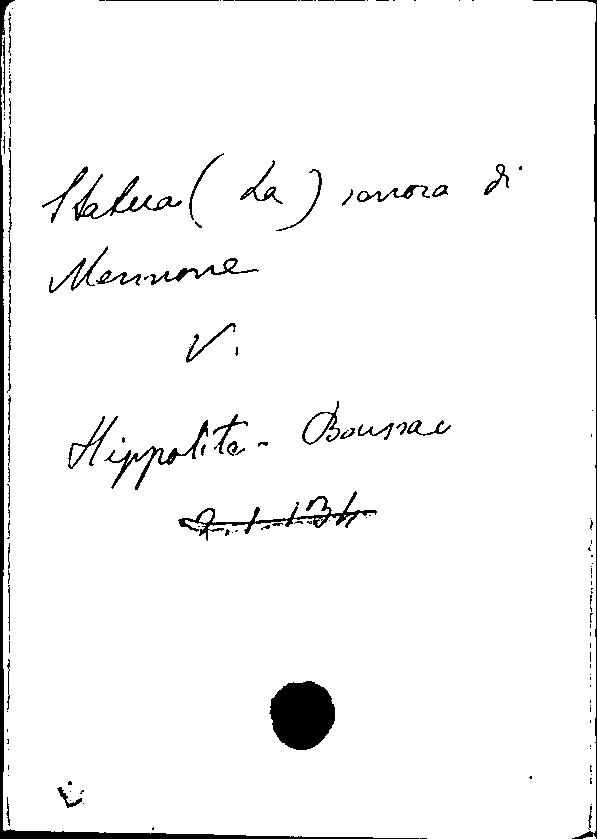 Statua (La) sonora di
Mennone
V.
Hippolite - Boussac
2.1.134